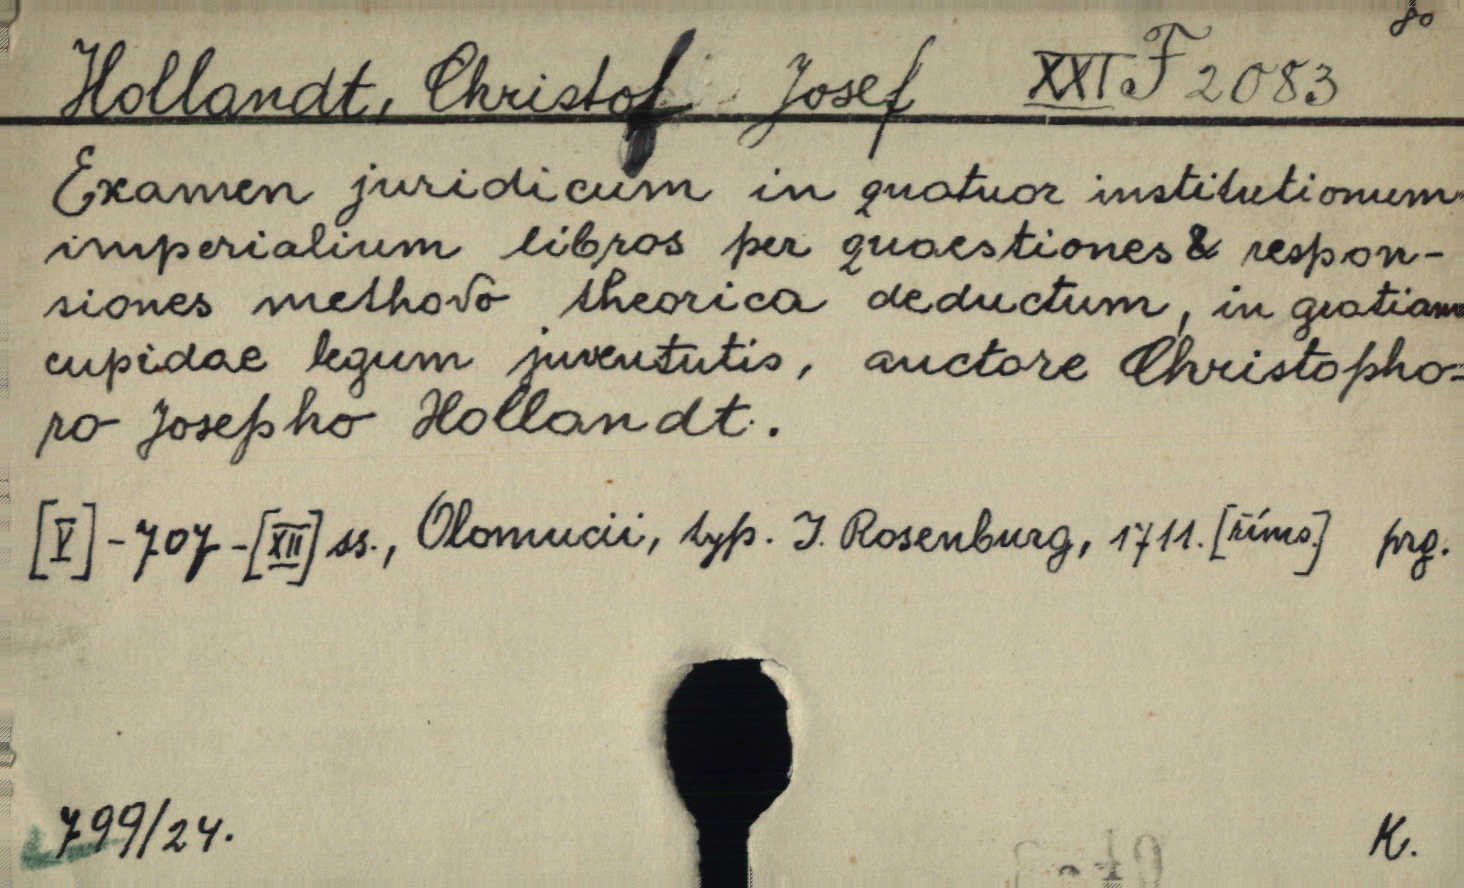 8°
Hollandt, Christof Josef XXI F 2083
Examen juridicum in quatuor institutionum
imperialium libros per quaestiones & respon-
siones methodo theorica deductum, in gratiam
cupidae legum juventutis, auctore Christopho=
ro Josepho Hollandt.
[V] - 707 - [XII] ss., Olomucii, typ. I. Rosenburg, 1711. [říms.] prg.
799/24. K.